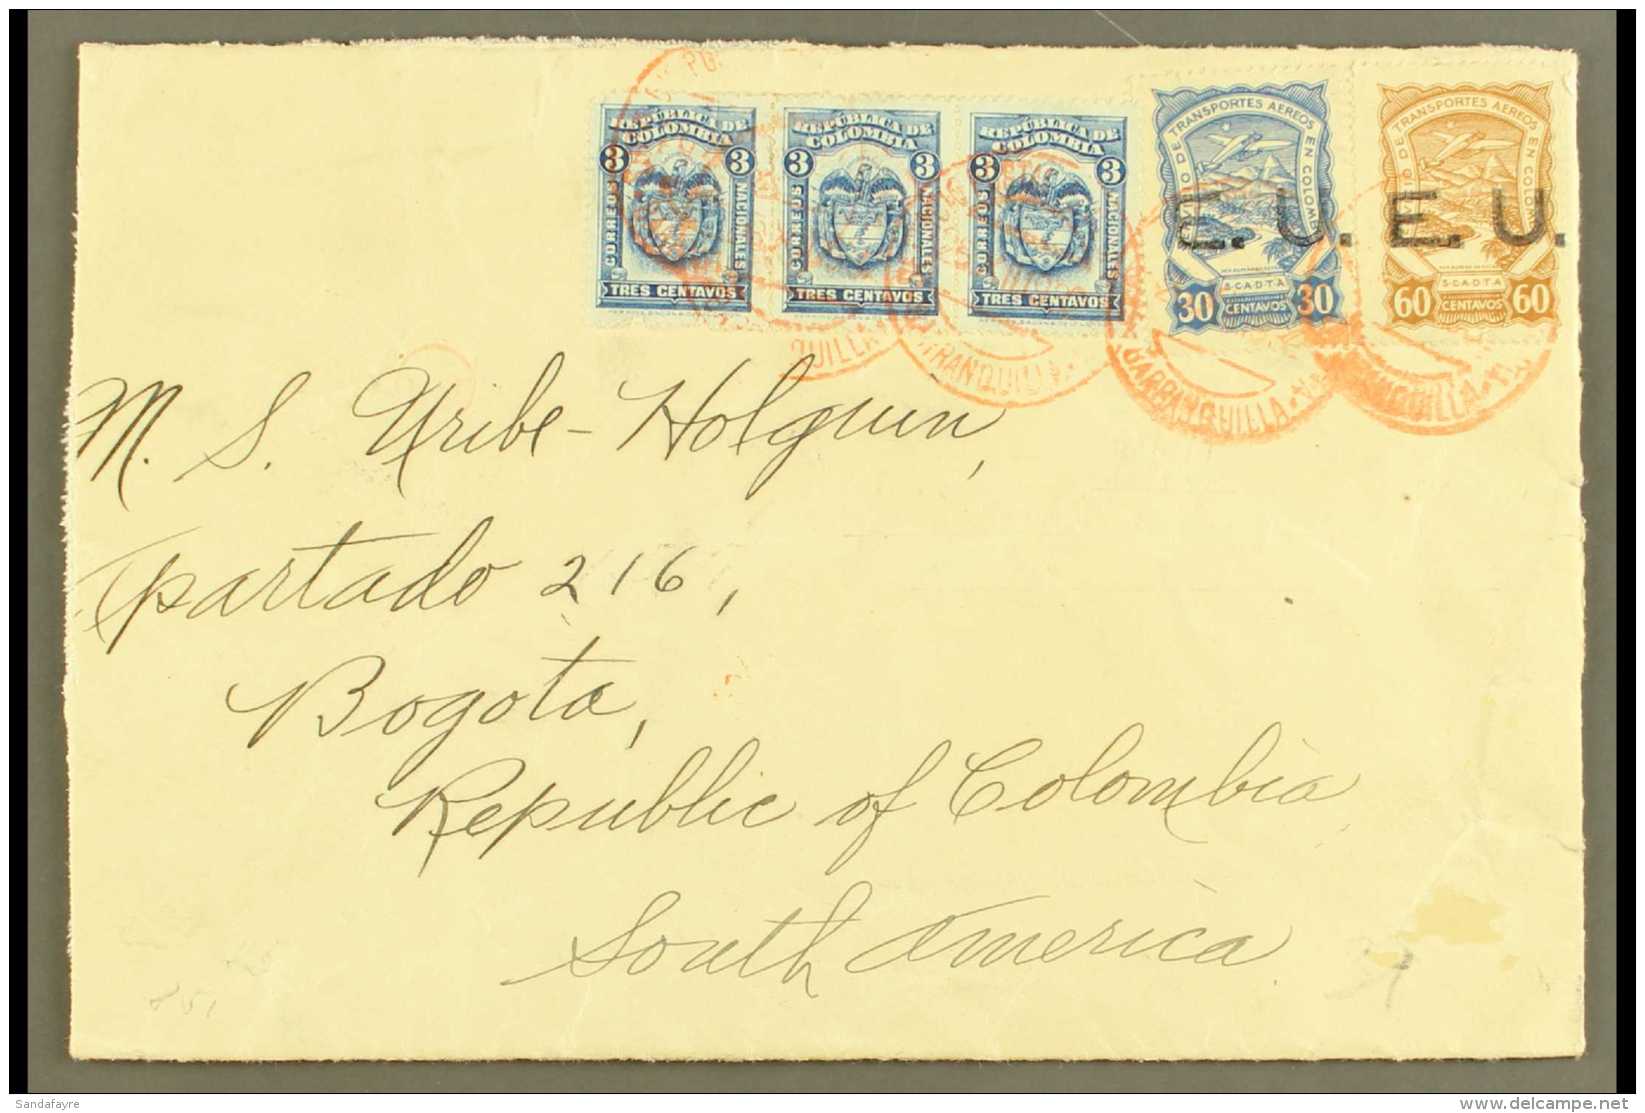 REPÚBLICA DE COLOMBIA
3 3
CORREOS NACIONALES
TRES CENTAVOS
REPÚBLICA DE COLOMBIA
3 3
CORREOS NACIONALES
TRES CENTAVOS
REPÚBLICA DE COLOMBIA
3 3
CORREOS NACIONALES
TRES CENTAVOS
DE TRANSPORTES AEREOS EN COLOMBIA
E. U.
S.C.A.D.T.A
30 CENTAVOS 30
DE TRANSPORTES AEREOS EN COLOMBIA
E. U.
S.C.A.D.T.A
60 CENTAVOS 60
BARRANQUILLA
M. S. Uribe-Holguin,
Apartado 216,
Bogota,
Republic of Colombia
South America
Sandafayre
delcampe.net